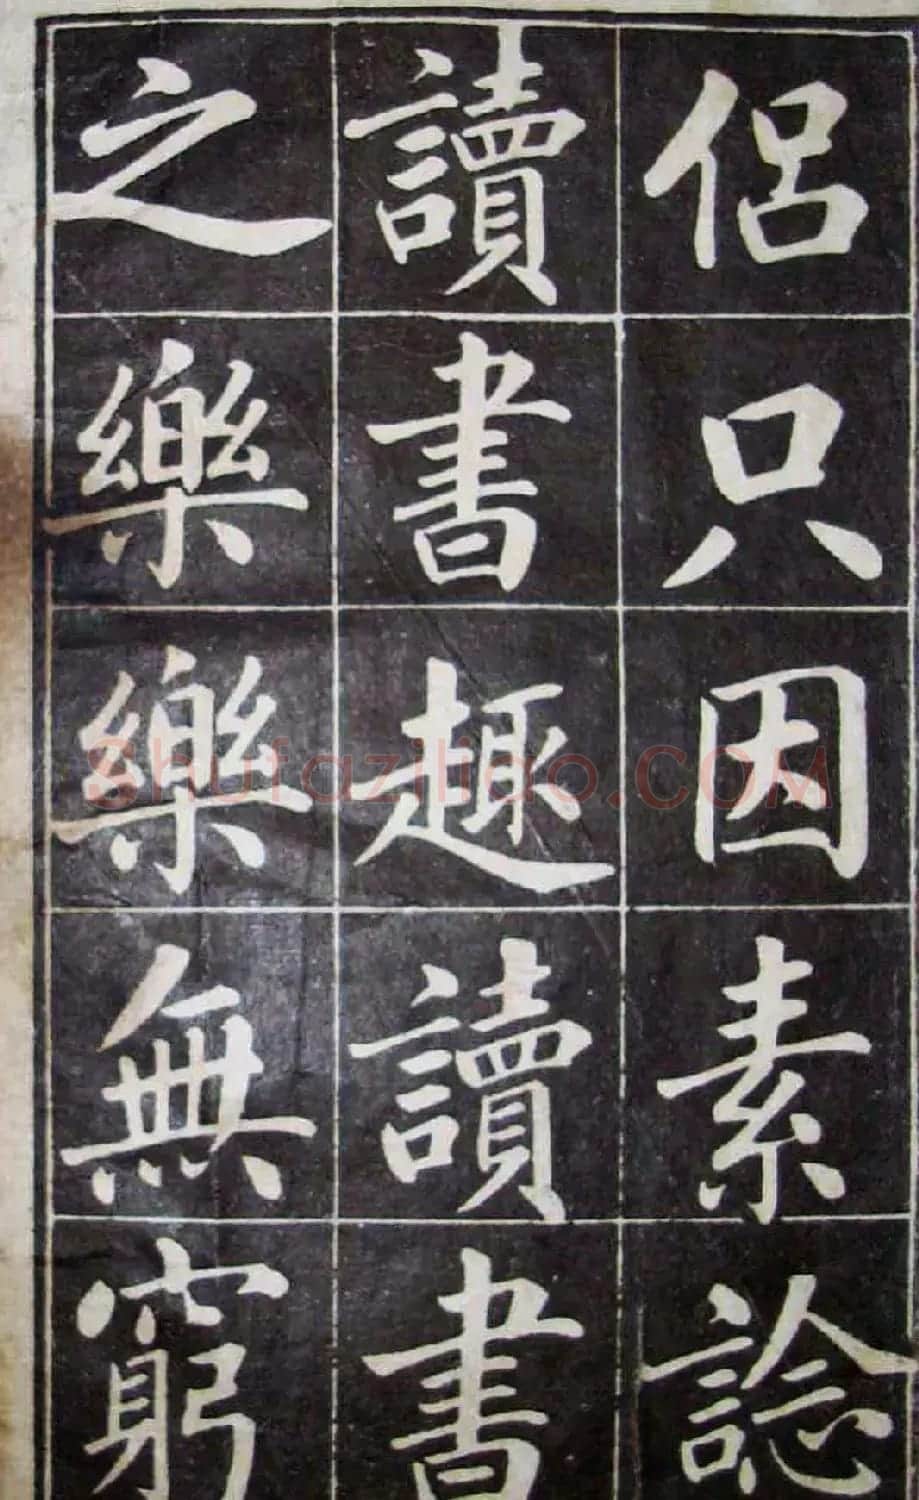 侶只因素諗
讀書趣讀書
之樂樂無窮
Shufaziliao.COM